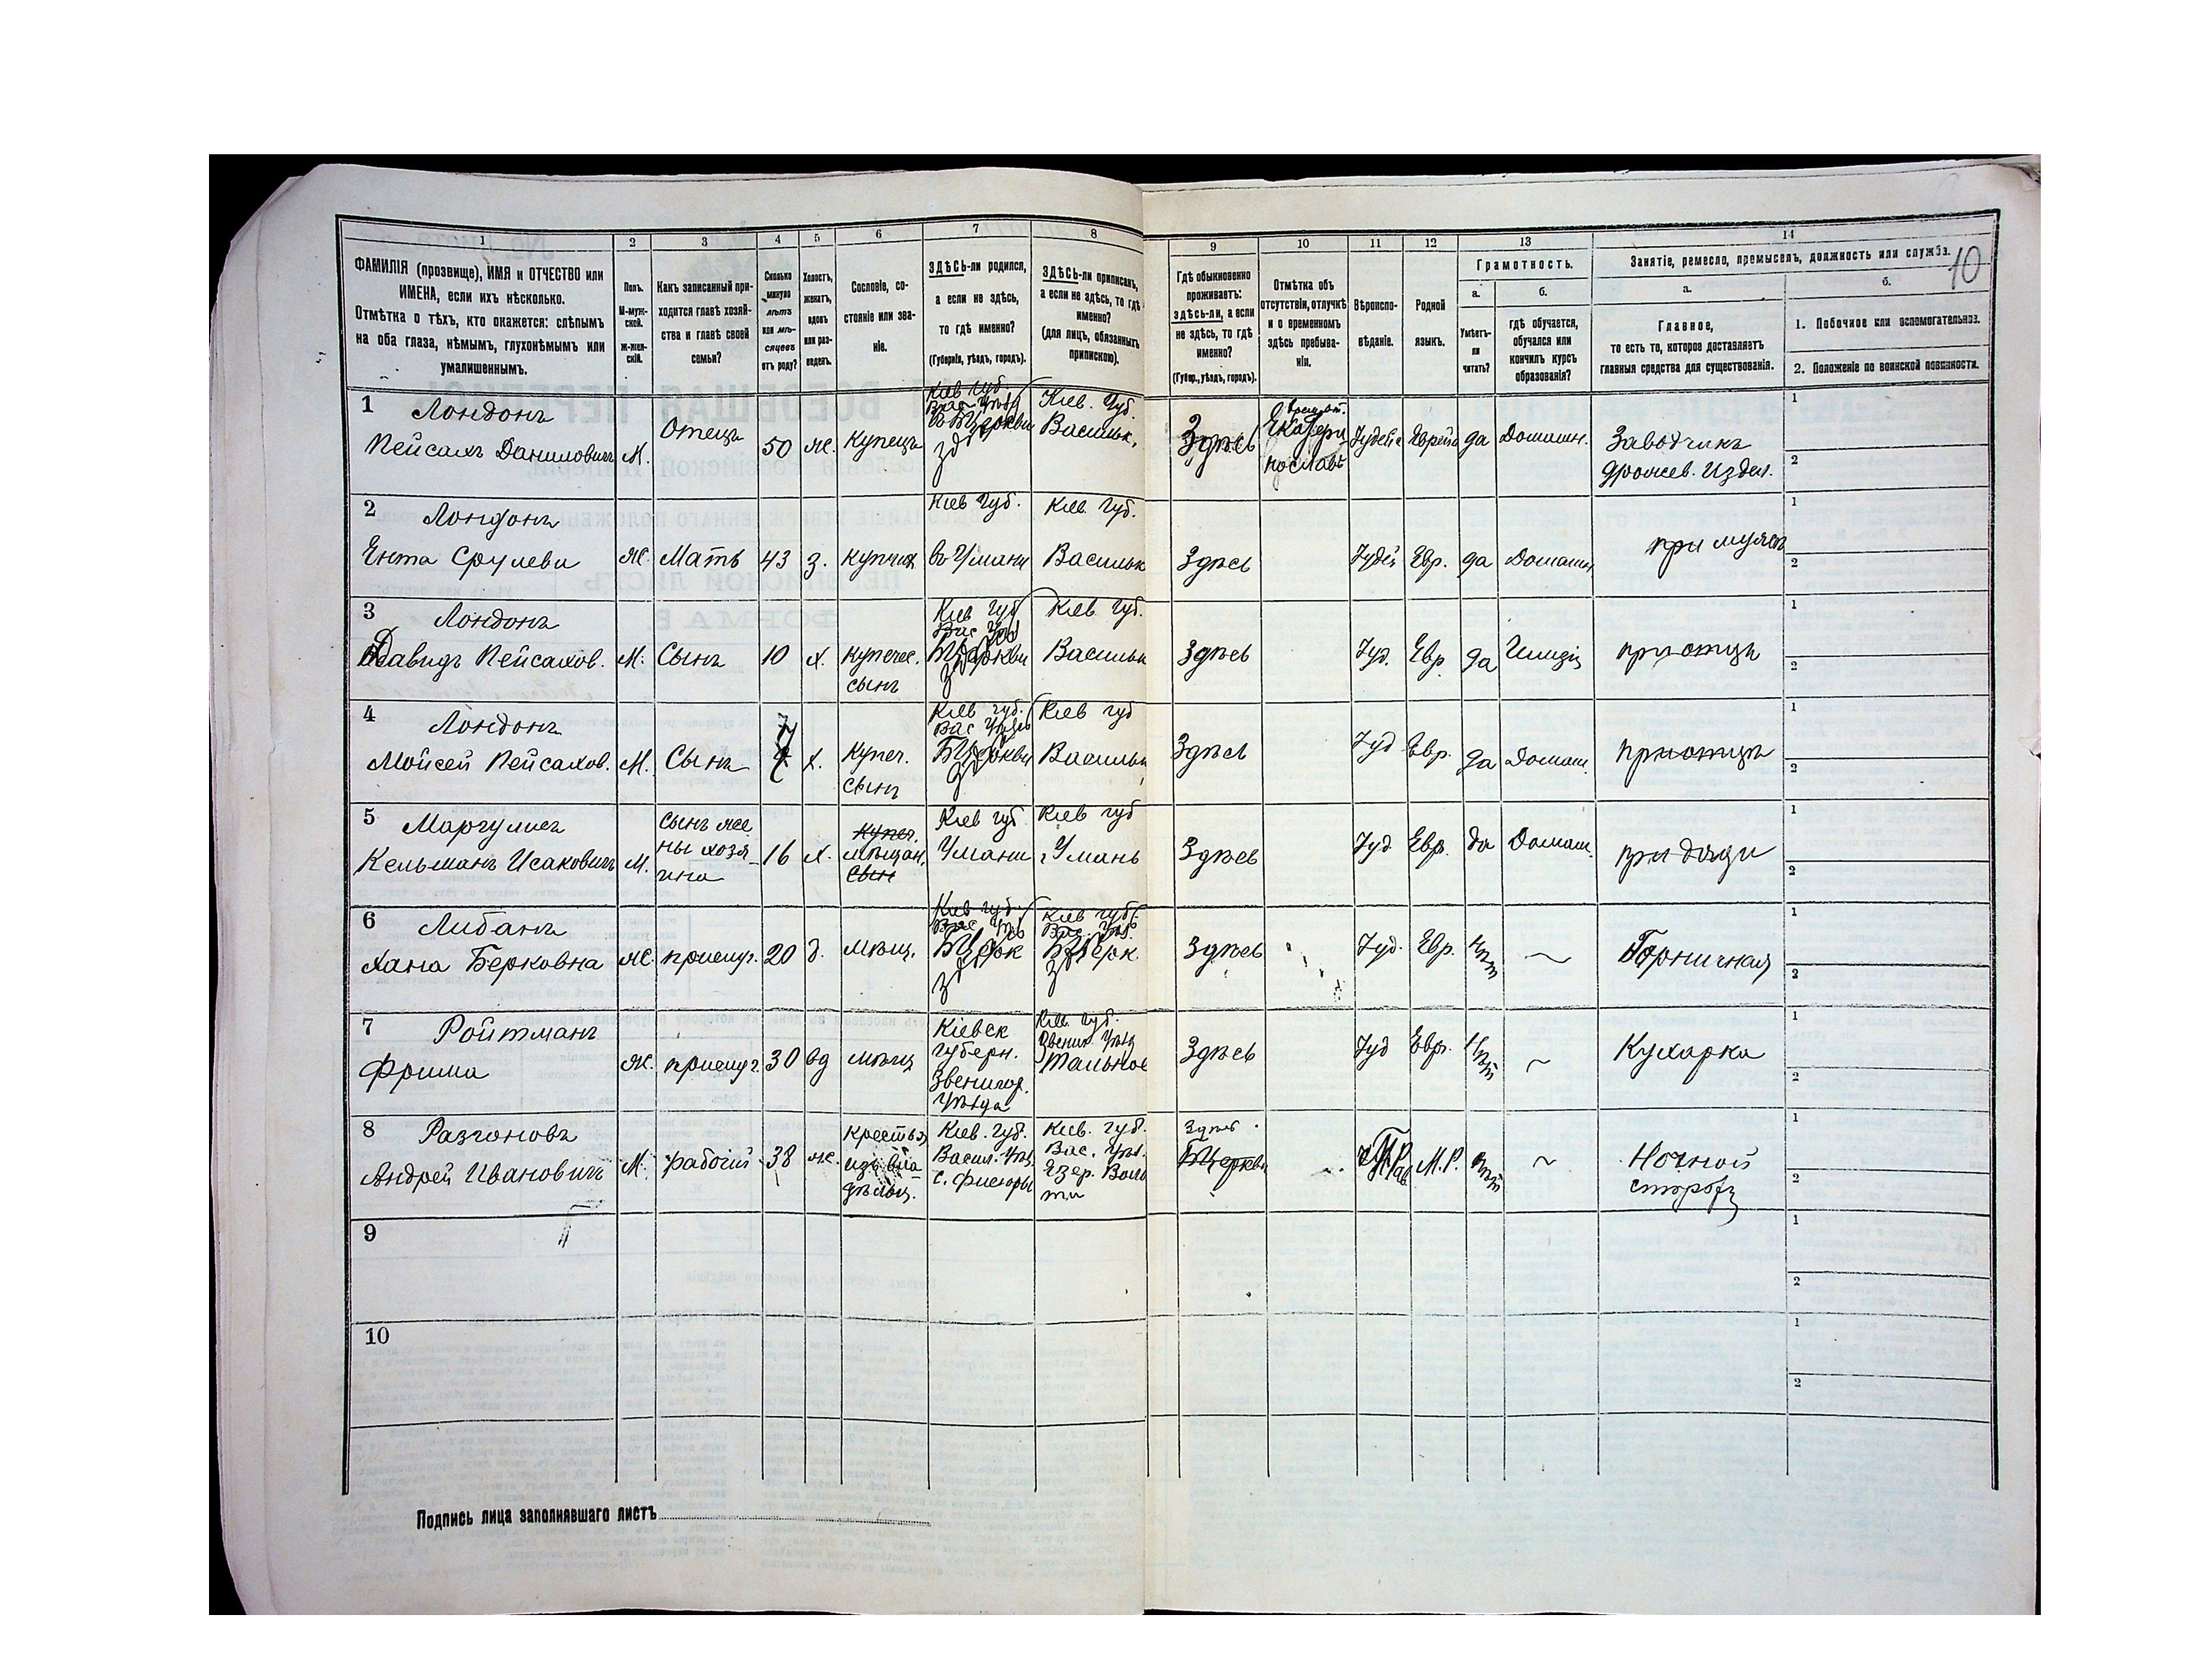 10
1 2 3 4 5 6 7 8 9 10 11 12 13 14
ФАМИЛІЯ (прозвище), ИМЯ и ОТЧЕСТВО или
ИМЕНА, если ихъ нѣсколько.
Отмѣтка о тѣхъ, кто окажется: слѣпымъ
на оба глаза, нѣмымъ, глухонѣмымъ или
умалишеннымъ.
Полъ.
М-муж-
ской.
ж-жен-
скій.
Какъ записанный при-
ходится главѣ хозяй-
ства и главѣ своей
семьи?
Сколько
минуло
лѣтъ
или мѣ-
сяцевъ
отъ роду?
Холостъ,
женатъ,
вдовъ
или раз-
веденъ.
Сословіе, со-
стояніе или зва-
ніе.
ЗДѢСЬ-ли родился,
а если не здѣсь,
то гдѣ именно?
(Губернія, уѣздъ, городъ).
ЗДѢСЬ-ли приписанъ,
а если не здѣсь, то гдѣ
именно?
(для лицъ, обязанныхъ
припискою).
Гдѣ обыкновенно
проживаетъ:
здѣсь-ли, а если
не здѣсь, то гдѣ
именно?
(Губер., уѣздъ, городъ).
Отмѣтка объ
отсутствіи, отлучкѣ
и о временномъ
здѣсь пребыва-
ніи.
Вѣроиспо-
вѣданіе.
Родной
языкъ.
Грамотность.
а.
Умѣетъ-
ли
читать?
б.
гдѣ обучается,
обучался или
кончилъ курсъ
образованія?
Занятіе, ремесло, промыселъ, должность или служба.
а.
Главное,
то есть то, которое доставляетъ
главныя средства для существованія.
б.
1. Побочное или вспомогательное.
2. Положеніе по воинской повинности.
1 Лондонъ
Пейсахъ Даниловичъ
М.
Отецъ
50
ж.
Купецъ
Кіев Губ.
Вас Уѣзд
БЦеркви
зд
Кіев. Губ.
Васильк.
Здѣсь
Екатери
нославъ
Іудейс
Еврейс
да
Домашн.
Заводчикъ
дрожжев. Издел.
1
2
2 Лондонъ
Ента Срулеви
Ж.
Мать
43
з.
купчих
Кіев Губ.
въ Умани
Кіев Губ.
Васильк
Здѣсь
Іудей
Евр.
да
Домашн.
при мужѣ
1
2
3 Лондонъ
Давидъ Пейсахов.
М.
Сынъ
10
х.
купечес.
сынъ
Кіев Губ
Вас Уѣз
БЦеркви
зд
Кіев Губ.
Васильк
Здѣсь
Іуд.
Евр
да
при отцѣ
1
2
4 Лондонъ
Мойсей Пейсахов.
М.
Сынъ
7
х.
Купеч.
сынъ
Кіев Губ.
Вас Уѣзд
БЦеркви
зд
Кіев Губ
Васильк
Здѣсь
Іуд
Евр.
да
Домаш.
при отцѣ
1
2
5 Маргулисъ
Кельманъ Исаковичъ
М.
сынъ же
ны хозя-
ина
16
х.
Купеч.
мѣщан.
сын
Кіев Губ
Умани
Кіев Губ
г. Умань
Здѣсь
Іуд
Евр.
да
Домаш.
при дяди
1
2
6 Либанъ
Хана Берковна
Ж.
прислуг.
20
д.
мѣщ.
Кіев Губ.
Вас Уѣз
БЦерк
зд
Кіев Губ.
Вас. Уѣз.
БЦерк.
зд
Здѣсь
Іуд.
Евр.
нѣт
~
Горничная
1
2
7 Ройтманъ
Фрима
Ж.
прислуг.
30
вд
мѣщ
Кіевск
Губерн.
Звенигор.
Уѣзда
Кіев. Губ.
Звениг. Уѣзд
Тальное
Здѣсь
Іуд
Евр.
Нѣт
~
Кухарка
1
2
8 Разгоновъ
Андрей Ивановичъ
М.
рабочій
38
ж.
Крестьян
изъ вла
дѣльц.
Кіев. Губ.
Васил. Уѣз.
Кіев. Губ.
Вас. Уѣз.
Езер. Воло
сти
Здѣсь
БЦеркви
Прав
М.Р.
нѣт
~
Ночной
сторожъ
1
2
9
1
2
10
1
2
Подпись лица заполнявшаго листъ